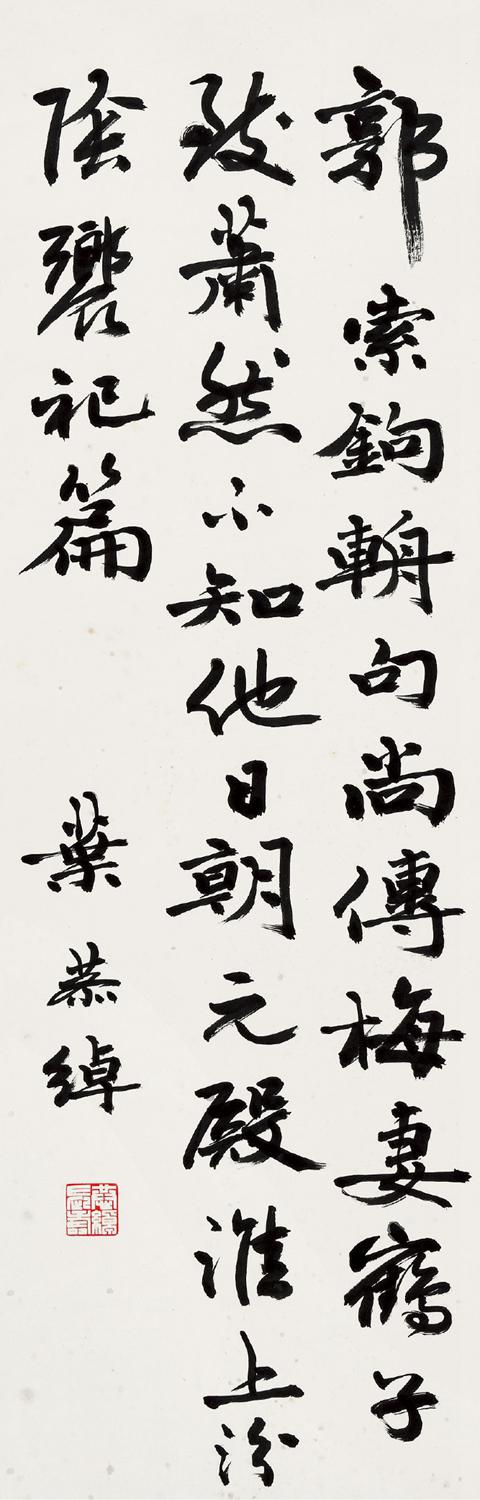 郭索鉤輈句尚傳梅妻鶴子
致蕭然不知他日朝元殿誰上汾
陰饗祀篇
葉恭綽